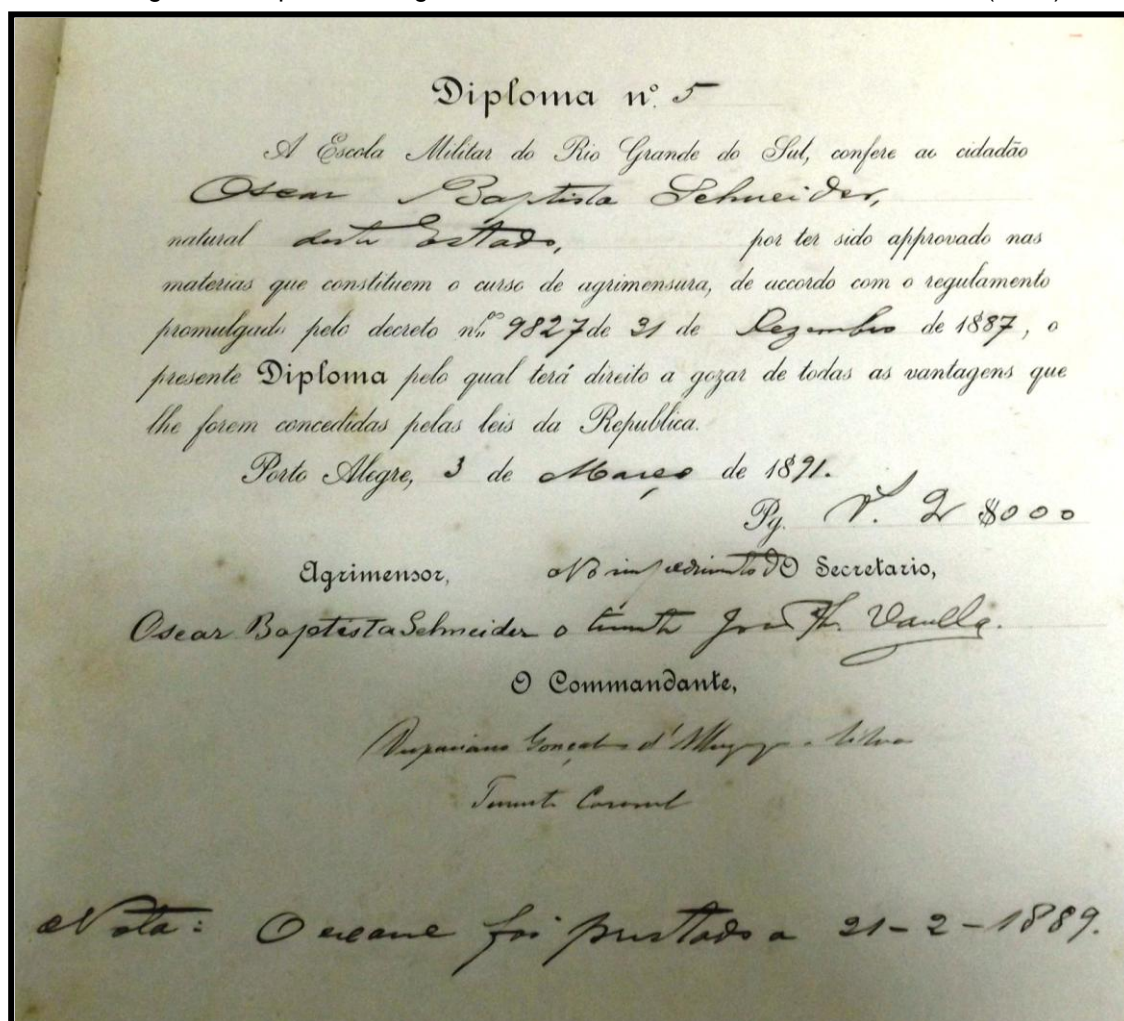 Diploma nº. 5
A Escola Militar do Rio Grande do Sul, confere ao cidadão
Oscar Baptista Schneider,
natural deste Estado, por ter sido approvado nas
materias que constituem o curso de agrimensura, de accordo com o regulamento
promulgado pelo decreto nº 9827 de 31 de Dezembro de 1887, o
presente Diploma pelo qual terá direito a gozar de todas as vantagens que
lhe forem concedidas pelas leis da Republica.
Porto Alegre, 3 de Março de 1891.
Pg. V. 2 $000
Agrimensor, No impedimento do O Secretario,
Oscar Baptista Schneider o tenente José Varella.
O Commandante,
Gonçalves d'Albuquerque e Silva
Tenente Coronel
Nota: O exame foi prestado a 21-2-1889.